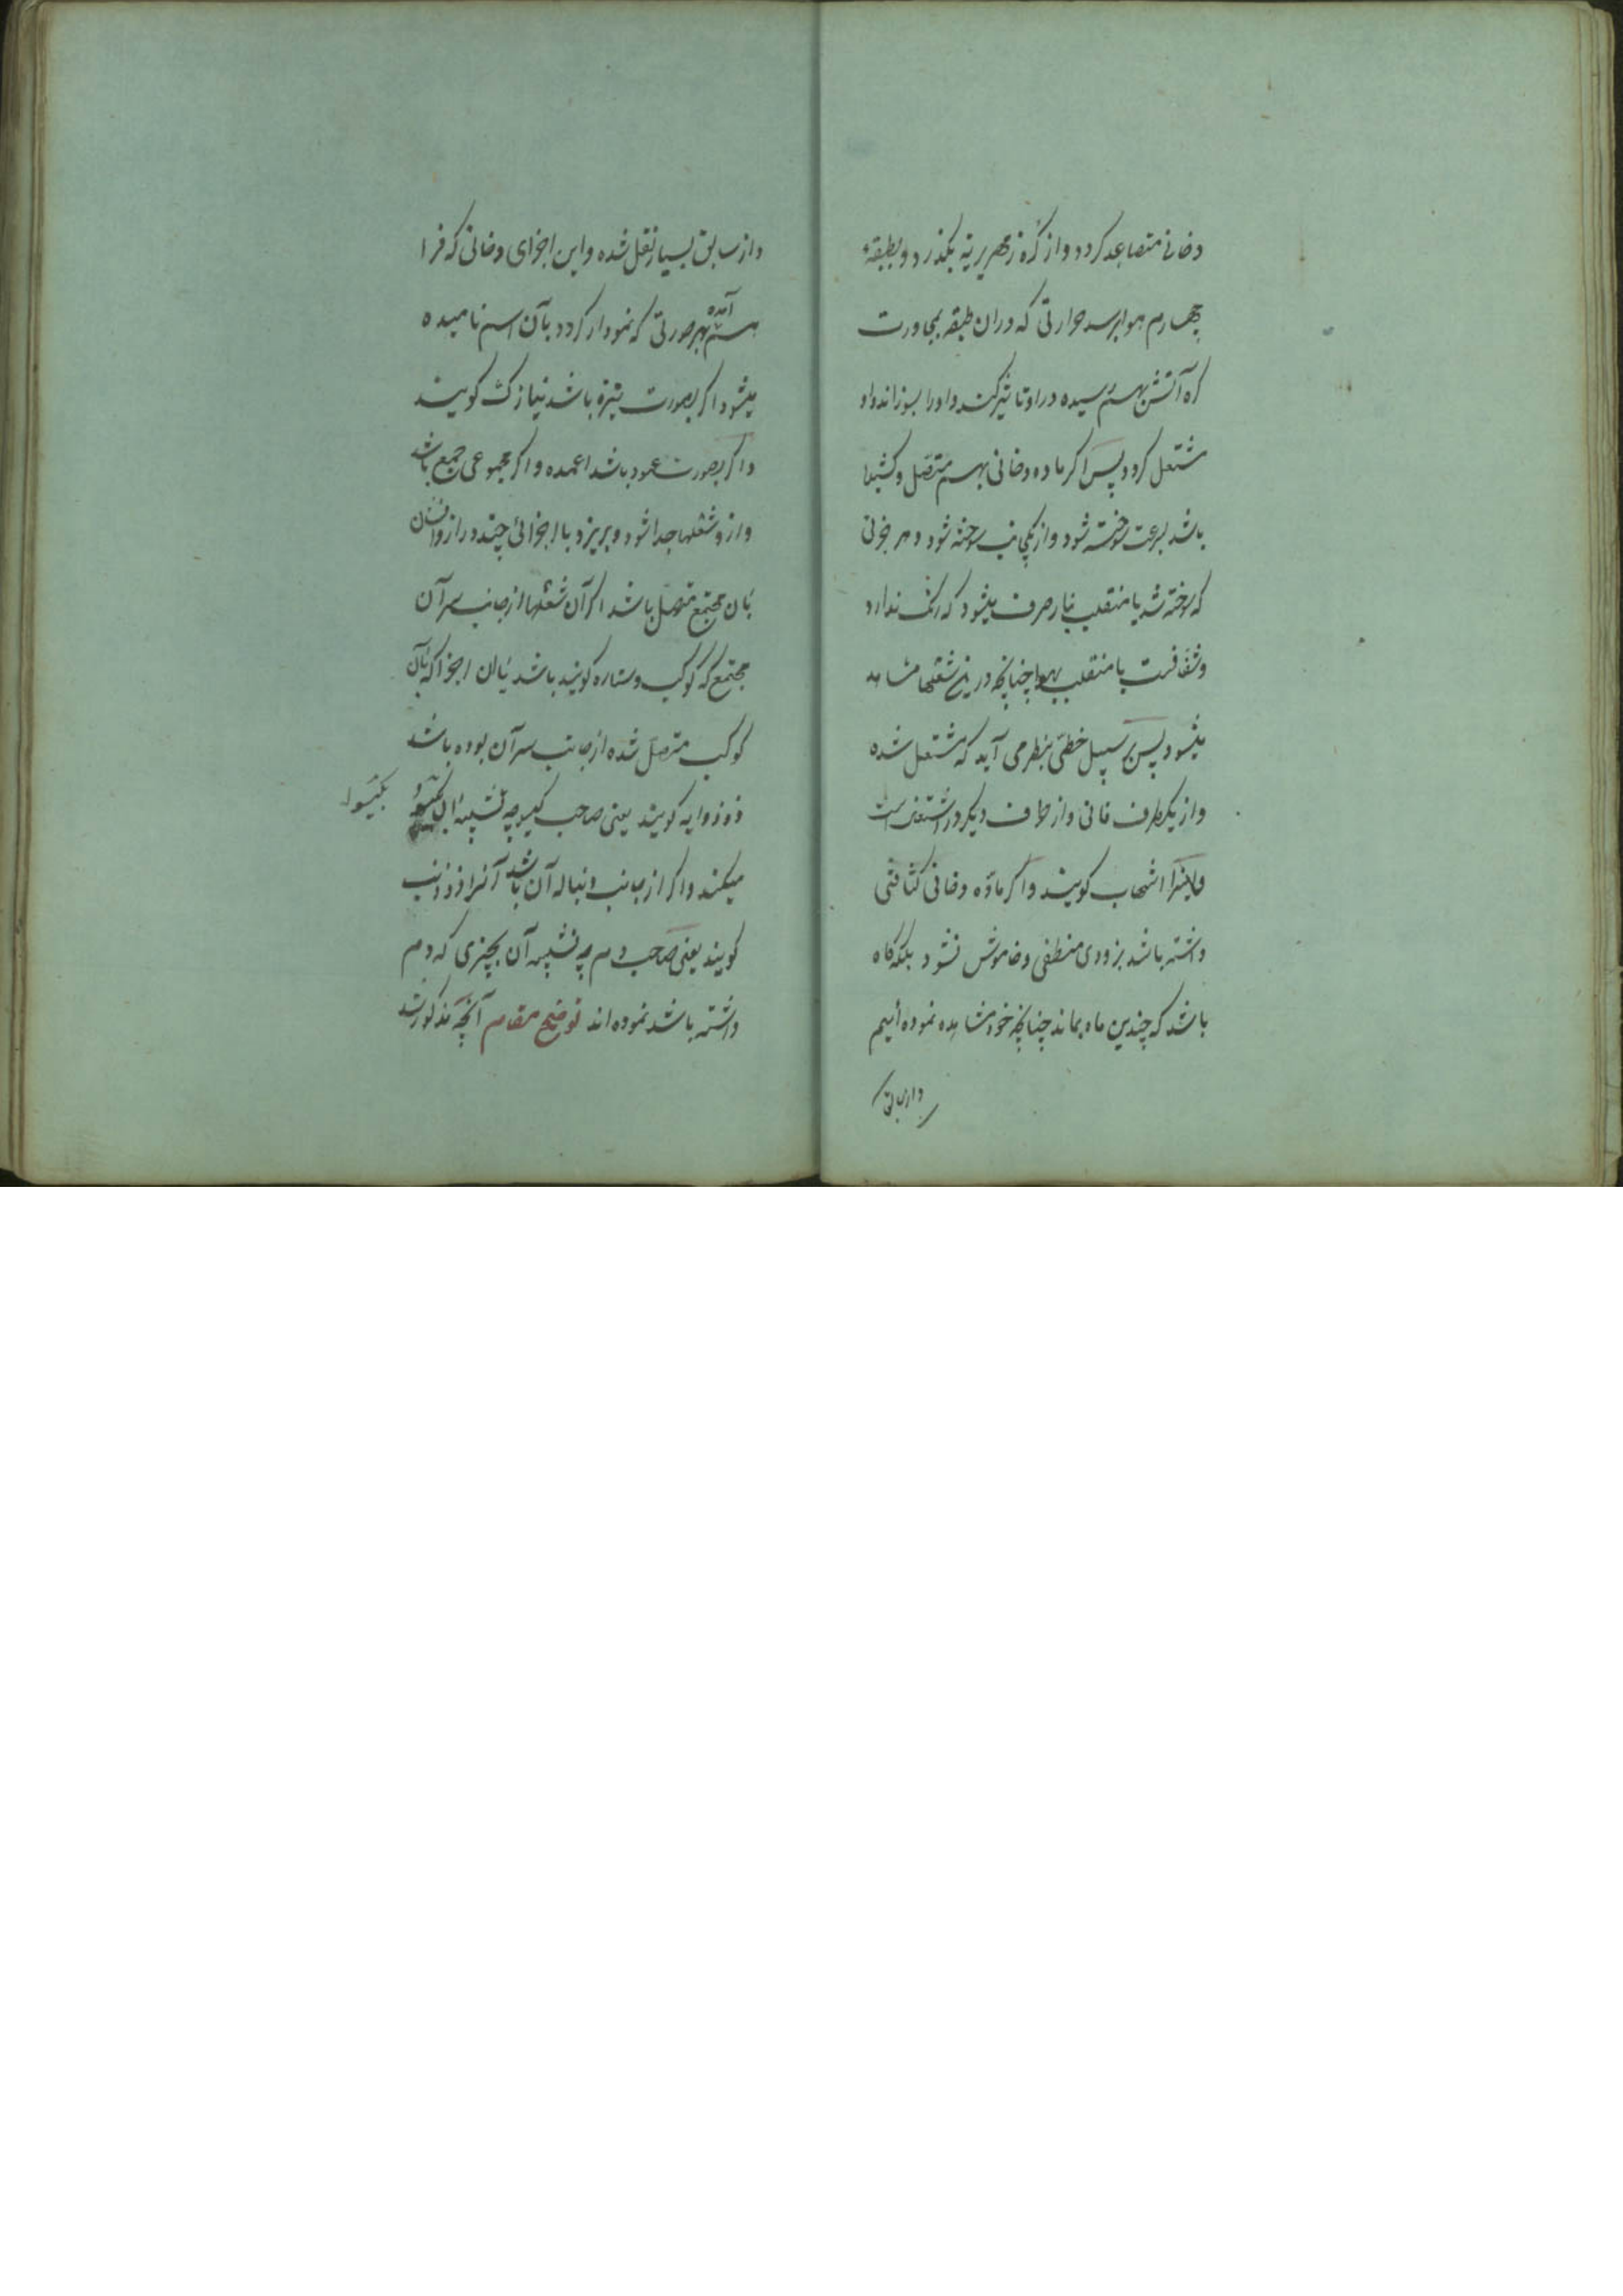 دخانی متصاعد کردد و از کرهٔ زمهریریه بگذرد و بطبقهٔ
چهارم هوا برسد حرارتی که دران طبقه بمجاورت
کره آتش بهم رسیده در او تاثیر کند و او را بسوزاند و او
مشتعل کردد پس اکر ماده دخانی بهم متصل و کشیده
باشد بسرعت سوخته شود و از یکجانب سوخته شود و هر جزئی
که سوخته شد یا منقلب بنار صرف میشود که رنک ندارد
و شفافست یا منقلب بهوا چنانچه در شعلها مشاهد
میشود پس بر سبیل خطی بنظر می آید که مشتعل شده
و از یکطرف فانی و از طرف دیکر در اشتعال است
و اینرا شهاب کویند و اکر ماده دخانی کثافتی
داشته باشد بزودی منطفی و خاموش نشود بلکه کاه
باشد که چندین ماه بماند چنانچه خود مشاهده نموده ایم
و از سابق
و از سابق بسیار نقل شده و این اجزای دخانی که فرا
هم آمده بهر صورتی که نمودار کردد بآن اسم نامیده
میشود اکر بصورت نیزه باشد نیازک کویند
و اکر بصورت عمود باشد اعمده و اکر مجموعی جمع باشد
و ازو شعلها جدا شود و بریزد یا اجزائی چند دراز
بان مجتمع متصل باشد اکر آن شعلها از جانب سر آن
مجتمع که کوکب و ستاره کویند باشد یا ان اجزا که بآن
کوکب متصل شده از جانب سر آن بوده باشد
ذو ذوابه کویند یعنی صاحب کیسو چه تشبیه آن بکیسو
بکیسو
میکنند و اکر از جانب دنباله آن باشد آنرا ذو ذنب
کویند یعنی صاحب دم چه تشبیه آن بچیزی که دم
داشته باشد نموده اند توضیح مقام آنچه مذکور شد